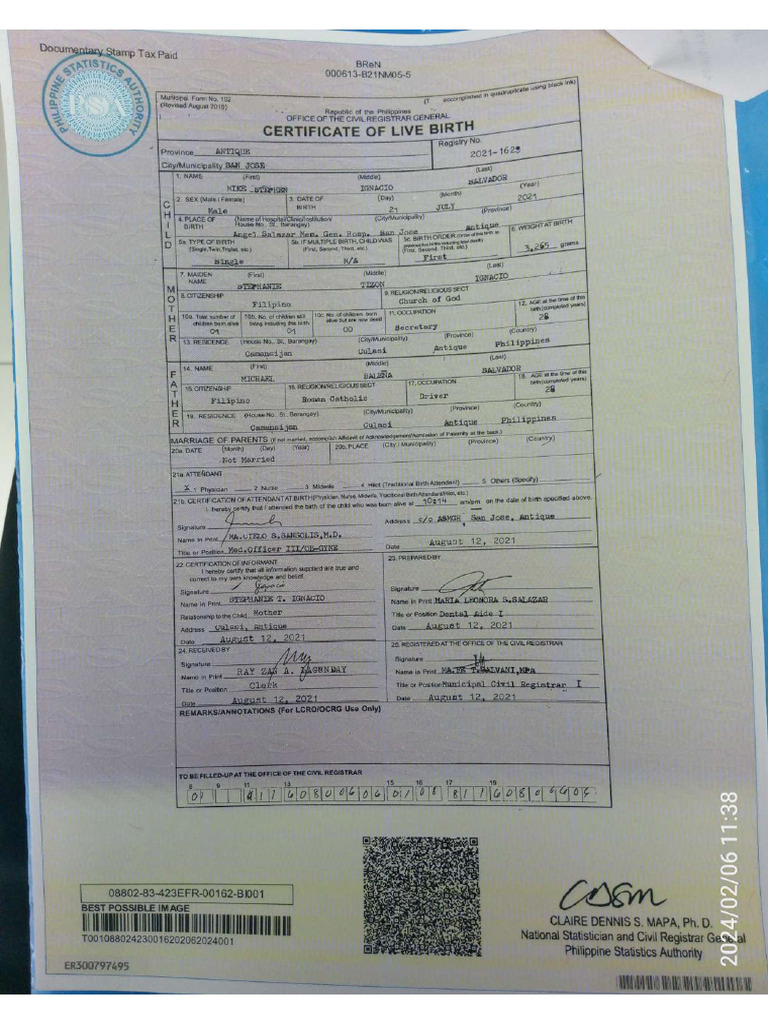 Documentary Stamp Tax Paid
PHILIPPINE STATISTICS AUTHORITY
PSA
BReN
000613-B21NM05-5
Municipal Form No. 102
(Revised August 2016)
(T accomplished in quadruplicate using black ink)
Republic of the Philippines
OFFICE OF THE CIVIL REGISTRAR GENERAL
CERTIFICATE OF LIVE BIRTH
Province ANTIQUE
Registry No.
2021-1625
City/Municipality SAN JOSE
CHILD
1. NAME (First) (Middle) (Last)
MIKE STEPHEN IGNACIO SALVADOR
2. SEX (Male / Female) 3. DATE OF BIRTH (Day) (Month) (Year)
Male 21 JULY 2021
4. PLACE OF BIRTH (Name of Hospital/Clinic/Institution/ House No., St., Barangay) (City/Municipality) (Province)
Angel Salazar Mem. Gen. Hosp. San Jose Antique
5a. TYPE OF BIRTH (Single, Twin, Triplet, etc.) 5b. IF MULTIPLE BIRTH, CHILD WAS (First, Second, Third, etc.) 5c. BIRTH ORDER (First, Second, Third, etc.) 6. WEIGHT AT BIRTH
Single N/A First 3,265 grams
MOTHER
7. MAIDEN NAME (First) (Middle) (Last)
STEPHANIE TIZON IGNACIO
8. CITIZENSHIP 9. RELIGION/RELIGIOUS SECT
Filipino Church of God
10a. Total number of children born alive 10b. No. of children still living including this birth 10c. No. of children born alive but are now dead 11. OCCUPATION 12. AGE at the time of this birth (completed years)
01 01 00 Secretary 28
13. RESIDENCE (House No., St., Barangay) (City/Municipality) (Province) (Country)
Camansijan Culasi Antique Philippines
FATHER
14. NAME (First) (Middle) (Last)
MICHAEL BALEÑA SALVADOR
15. CITIZENSHIP 16. RELIGION/RELIGIOUS SECT 17. OCCUPATION 18. AGE at the time of this birth (completed years)
Filipino Roman Catholic Driver 28
19. RESIDENCE (House No., St., Barangay) (City/Municipality) (Province) (Country)
Camansijan Culasi Antique Philippines
MARRIAGE OF PARENTS (If not married, accomplish Affidavit of Acknowledgement/Admission of Paternity at the back.)
20a. DATE (Month) (Day) (Year) 20b. PLACE (City / Municipality) (Province) (Country)
Not Married
21a. ATTENDANT
X 1 Physician 2 Nurse 3 Midwife 4 Hilot (Traditional Birth Attendant) 5 Others (Specify)
21b. CERTIFICATION OF ATTENDANT AT BIRTH (Physician, Nurse, Midwife, Traditional Birth Attendant/Hilot, etc.)
I hereby certify that I attended the birth of the child who was born alive at 10:14 am/pm on the date of birth specified above.
Signature
Address c/o ASMGH, San Jose, Antique
Name in Print MA. CIELO S. SANGOLIS, M.D.
Title or Position Med. Officer III/OB-GYNE
Date August 12, 2021
22. CERTIFICATION OF INFORMANT
I hereby certify that all information supplied are true and
correct to my own knowledge and belief.
Signature
Name in Print STEPHANIE T. IGNACIO
Relationship to the Child Mother
Address Culasi, Antique
Date August 12, 2021
23. PREPARED BY
Signature
Name in Print MARIA LEONORA S. SALAZAR
Title or Position Dental Aide I
Date August 12, 2021
24. RECEIVED BY
Signature
Name in Print RAY ZAN A.
Title or Position Clerk
Date August 12, 2021
25. REGISTERED AT THE OFFICE OF THE CIVIL REGISTRAR
Signature
Name in Print MA. FE T. GALVANI, MPA
Title or Position Municipal Civil Registrar I
Date August 12, 2021
REMARKS/ANNOTATIONS (For LCRO/OCRG Use Only)
TO BE FILLED-UP AT THE OFFICE OF THE CIVIL REGISTRAR
8 9 11 13 15 16 17 19
08802-83-423EFR-00162-BI001
BEST POSSIBLE IMAGE
T001088024230016202062024001
ER300797495
CLAIRE DENNIS S. MAPA, Ph. D.
National Statistician and Civil Registrar General
Philippine Statistics Authority
2024/02/06 11:38